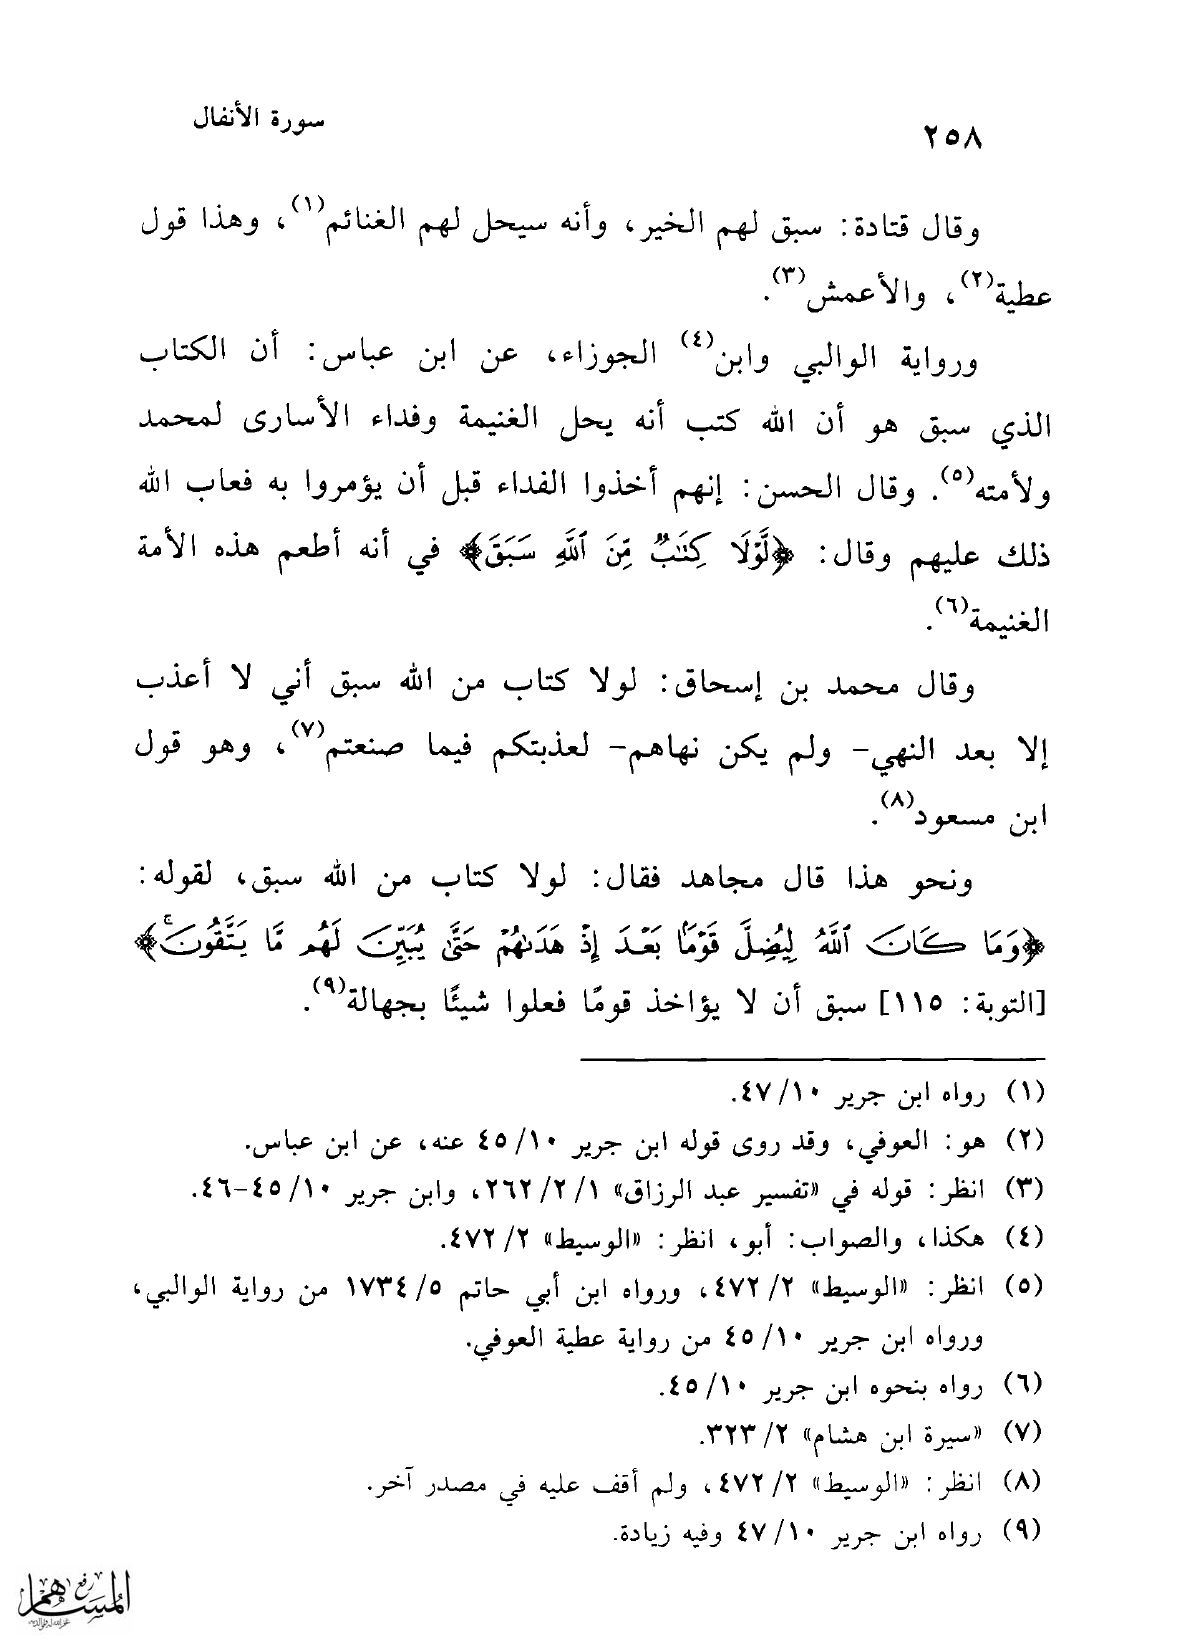 سورة الأنفال
٢٥٨
وقال قتادة: سبق لهم الخير، وأنه سيحل لهم الغنائم(١)، وهذا قول
عطية(٢)، والأعمش(٣).
ورواية الوالبي وابن(٤) الجوزاء، عن ابن عباس: أن الكتاب
الذي سبق هو أن الله كتب أنه يحل الغنيمة وفداء الأسارى لمحمد
ولأمته(٥). وقال الحسن: إنهم أخذوا الفداء قبل أن يؤمروا به فعاب الله
ذلك عليهم وقال: ﴿لَّوْلَا كِتَٰبٌ مِّنَ ٱللَّهِ سَبَقَ﴾ في أنه أطعم هذه الأمة
الغنيمة(٦).
وقال محمد بن إسحاق: لولا كتاب من الله سبق أني لا أعذب
إلا بعد النهي- ولم يكن نهاهم- لعذبتكم فيما صنعتم(٧)، وهو قول
ابن مسعود(٨).
ونحو هذا قال مجاهد فقال: لولا كتاب من الله سبق، لقوله:
﴿وَمَا كَانَ ٱللَّهُ لِيُضِلَّ قَوْمًۢا بَعْدَ إِذْ هَدَىٰهُمْ حَتَّىٰ يُبَيِّنَ لَهُم مَّا يَتَّقُونَۚ﴾
[التوبة: ١١٥] سبق أن لا يؤاخذ قومًا فعلوا شيئًا بجهالة(٩).
(١) رواه ابن جرير ١٠/ ٤٧.
(٢) هو: العوفي، وقد روى قوله ابن جرير ١٠/ ٤٥ عنه، عن ابن عباس.
(٣) انظر: قوله في «تفسير عبد الرزاق» ١/ ٢/ ٢٦٢، وابن جرير ١٠/ ٤٥-٤٦.
(٤) هكذا، والصواب: أبو، انظر: «الوسيط» ٢/ ٤٧٢.
(٥) انظر: «الوسيط» ٢/ ٤٧٢، ورواه ابن أبي حاتم ٥/ ١٧٣٤ من رواية الوالبي،
ورواه ابن جرير ١٠/ ٤٥ من رواية عطية العوفي.
(٦) رواه بنحوه ابن جرير ١٠/ ٤٥.
(٧) «سيرة ابن هشام» ٢/ ٣٢٣.
(٨) انظر: «الوسيط» ٢/ ٤٧٢، ولم أقف عليه في مصدر آخر.
(٩) رواه ابن جرير ١٠/ ٤٧ وفيه زيادة.